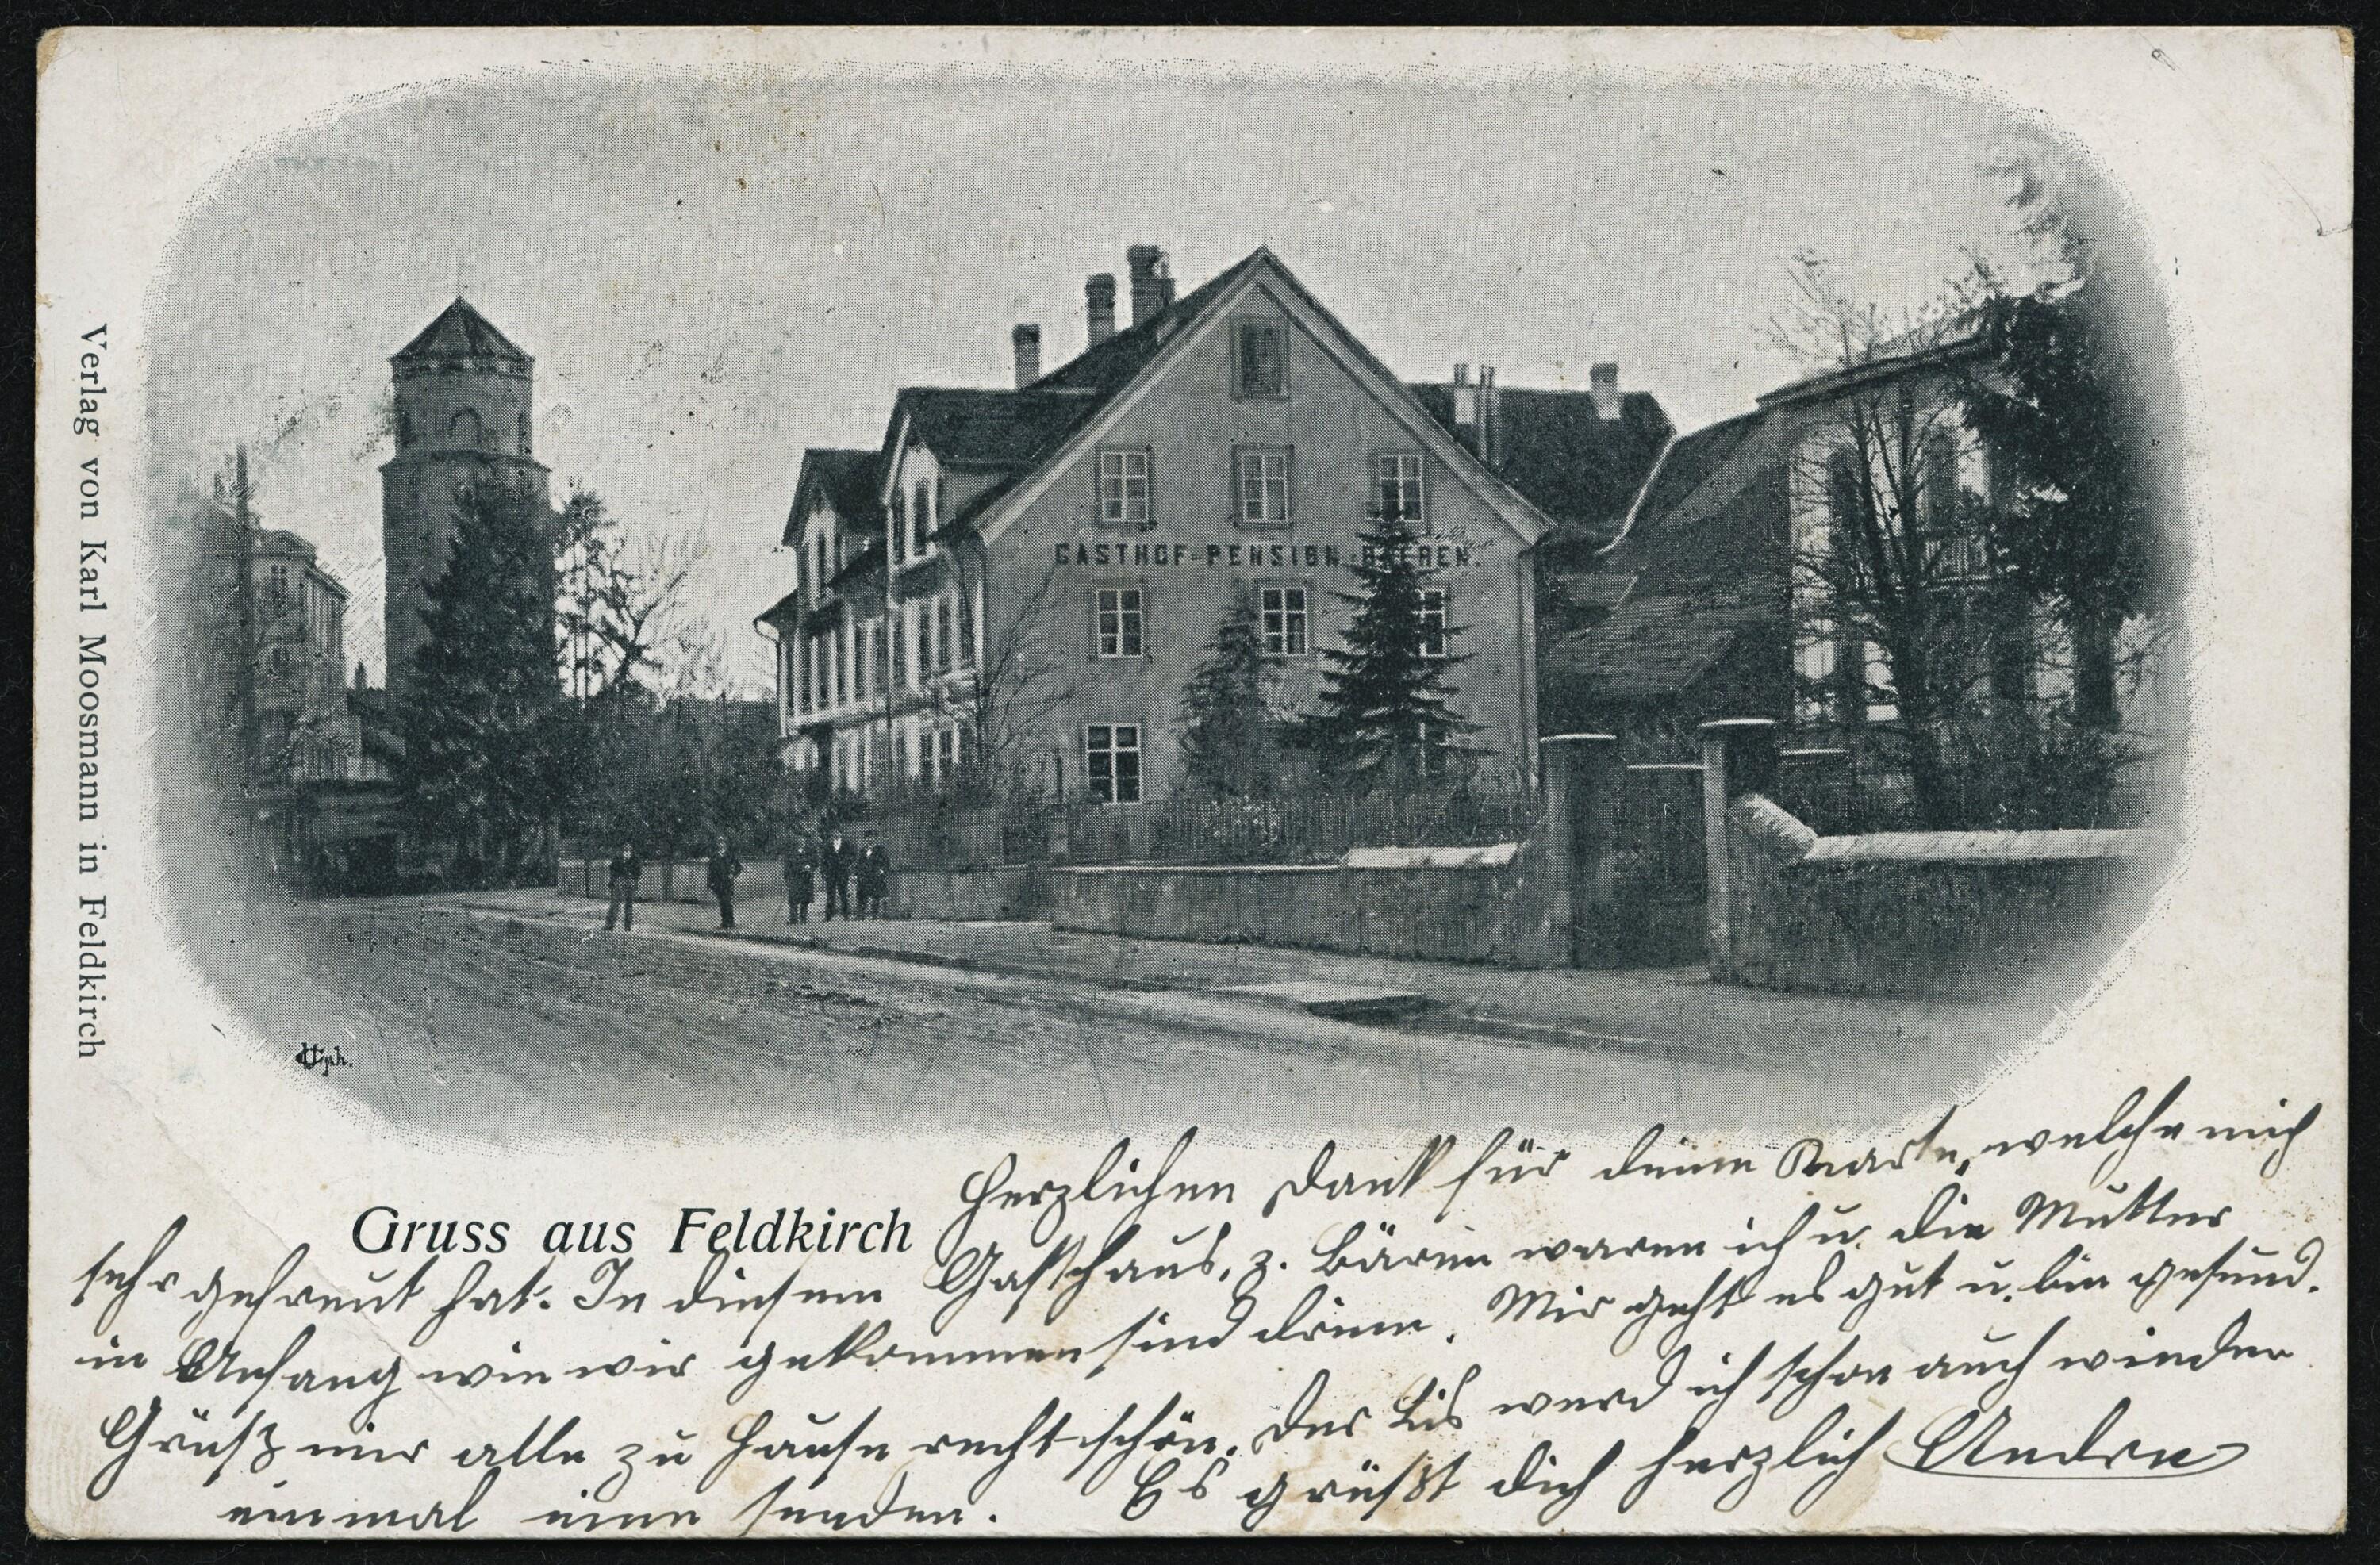 Verlag von Karl Moosmann in Feldkirch
GASTHOF-PENSION BAEREN.
Gruss aus Feldkirch
Herzlichen Dank für deine Karte, welche mich
sehr gefreut hat. In diesem Gasthaus, z. Bären waren ich u. die Mutter
in Anfang wie wir gekommen sind drinn. Mir geht es gut u. bin gesund.
Grüß mir alle zu Hause recht schön. Der Lis werd ich schon auch wieder
einmal eine senden. Es grüßt dich herzlich Andre